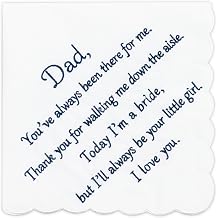 Dad,
You've always been there for me.
Thank you for walking me down the aisle.
Today I'm a bride,
but I'll always be your little girl.
I love you.